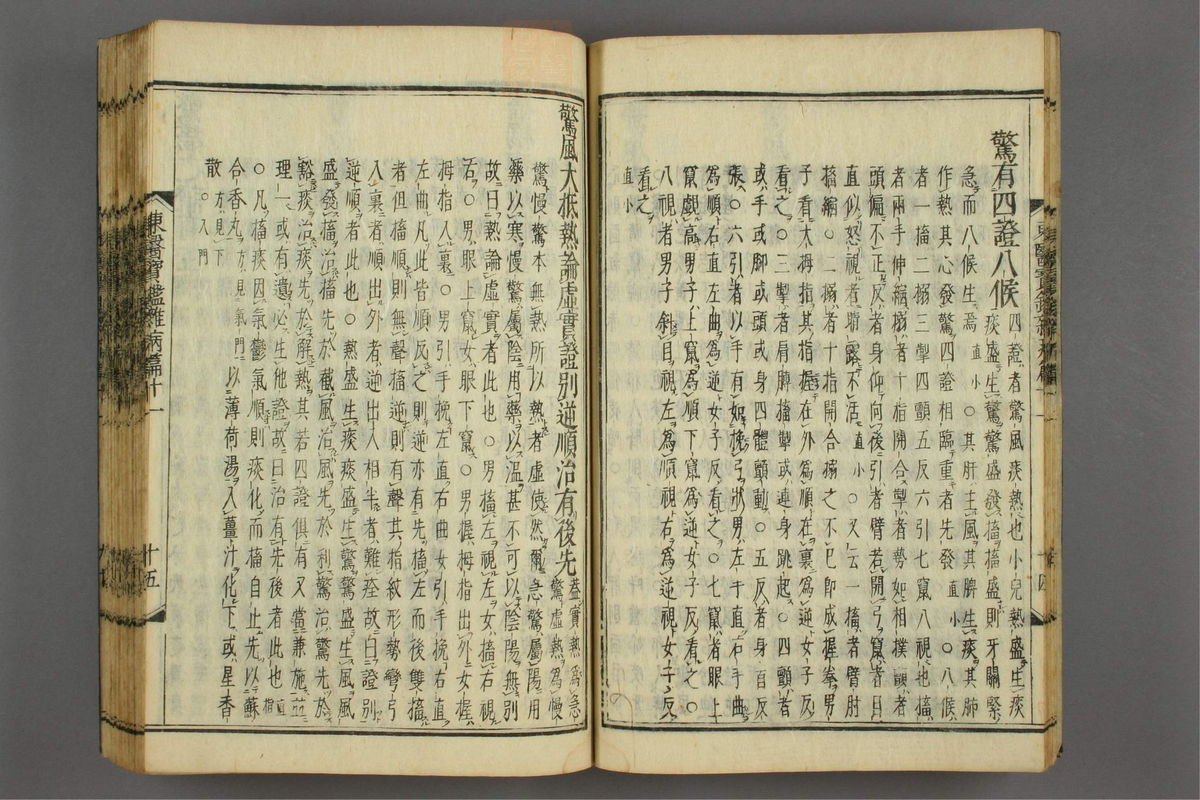 驚有四證八候四證者驚風痰熱也小兒熱盛生痰
痰盛生驚驚盛發搐搐盛則牙關緊
急而八候生焉直小○其肝主風其脾生痰其肺
作熱其心發驚四證相臨重者先發直小○八候
者一搐二搦三掣四顫五反六引七竄八視也搐
者兩手伸縮搦者十指開合掣者勢如相撲顫者
頭偏不正反者身仰向後引者臂若開弓竄者目
直似怒視者睛露不活直小○又云一搐者臂肘
搐縮○二搦者十指開合搦之不已即成握拳男
子看之大拇指其指握在外爲順在裏爲逆女子反
看之○三掣者肩膊搐掣或連身跳起○四顫者
或手或脚或頭或身四體顫動○五反者身百反
張○六引者以手有如挽弓狀男左手直右手曲
爲順右直左曲爲逆女子反看之○七竄者眼上
竄覷高男子上竄爲順下竄爲逆女子反看之○
八視者男子斜目視左爲順視右爲逆視女子反
看之
直小
驚風大抵熱論虛實證別逆順治有後先蓋實熱爲急
驚虛熱爲慢
驚慢驚本無熱所以熱者虛使然爾急驚屬陽用
藥以寒慢驚屬陰用藥以溫甚不可以陰陽無別
故曰熱論虛實者此也○男搐左視左女搐右視
右○男眼上竄女眼下竄○男握拇指出外女握
拇指入裏○男引手挽左直右曲女引手挽右直
左曲凡此皆順反之則逆亦有先搐左而後雙搐
者但搐順則無聲搐逆則有聲其指紋形勢彎弓
入裏者順出外者逆出入相半者難痊故曰證別
逆順者此也○熱盛生痰痰盛生驚驚盛生風風
盛發搐治搐先於截風治風先於利驚治驚先於
豁痰治痰先於解熱其若四證俱有又當兼施並
理一或有遺必生他證故曰治有先後者此也直指
○凡搐痰因氣鬱氣順則痰化而搐自止先以蘇
合香丸方見氣門以薄荷湯入薑汁化下或星香
散方見下○入門
東醫寶鑑雜病篇十一
十五